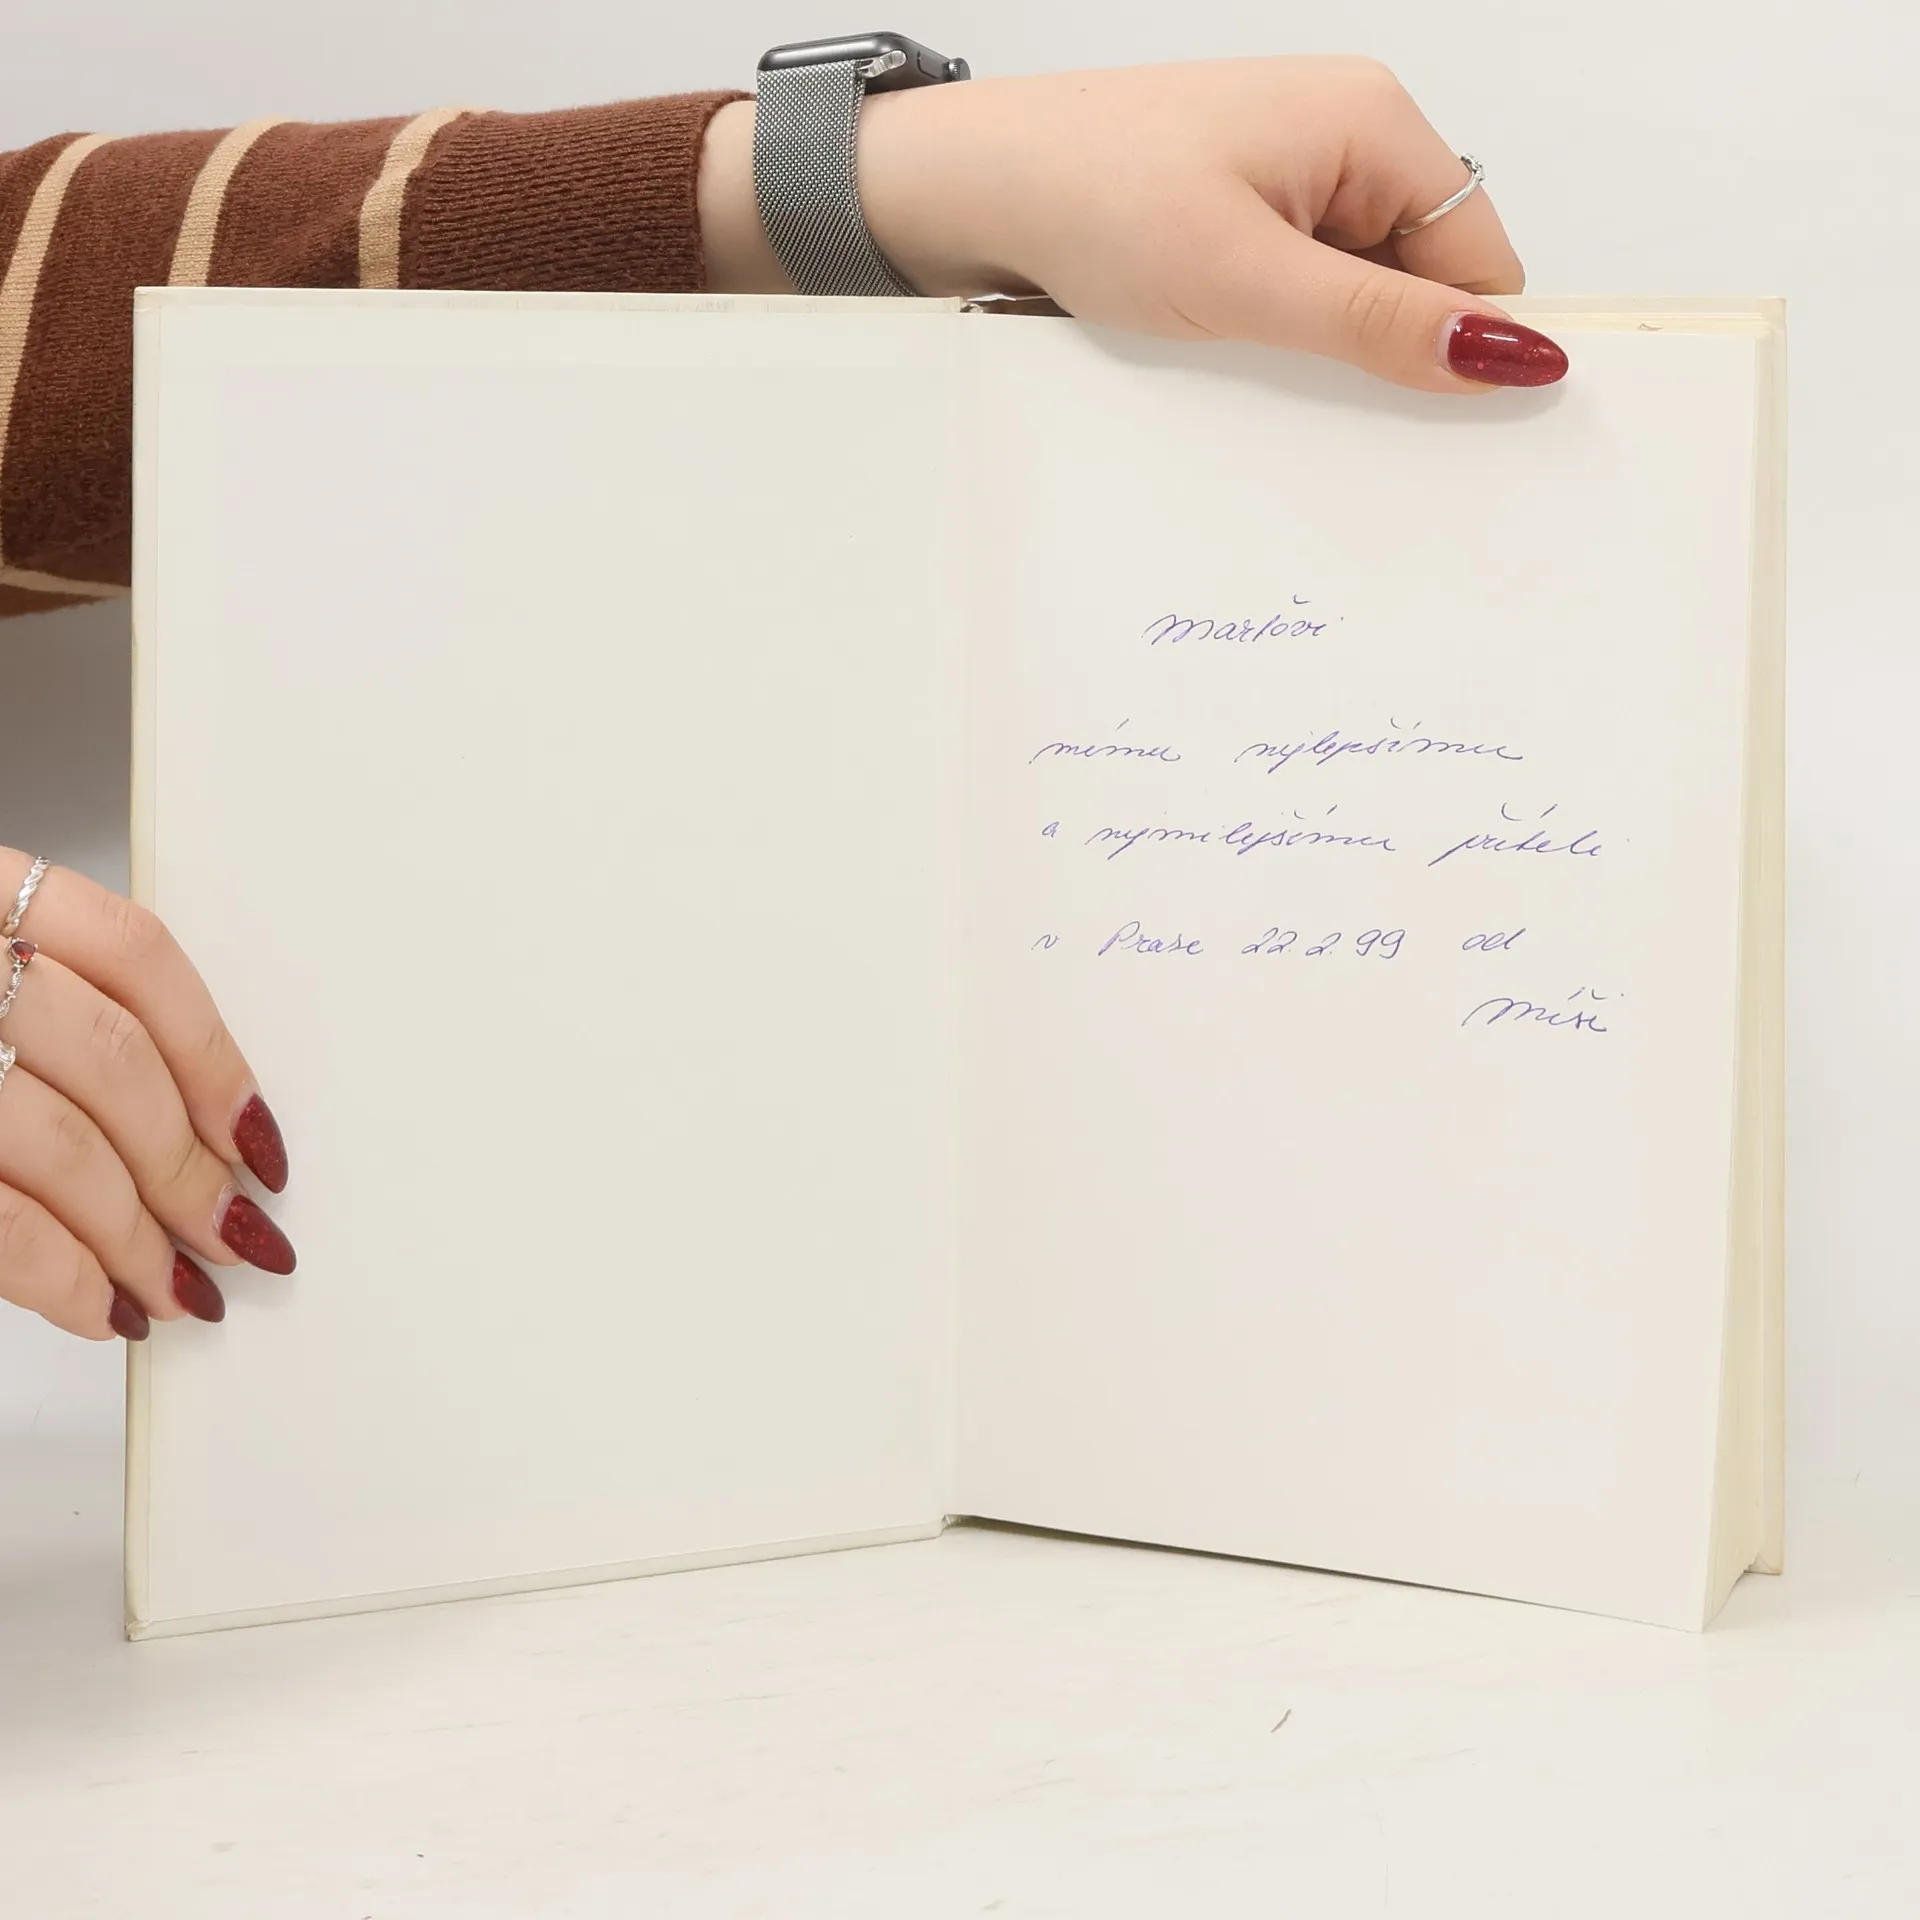 Marťovi
mému nejlepšímu
a nejmilejšímu příteli
v Praze 22.2.99 od
Míši